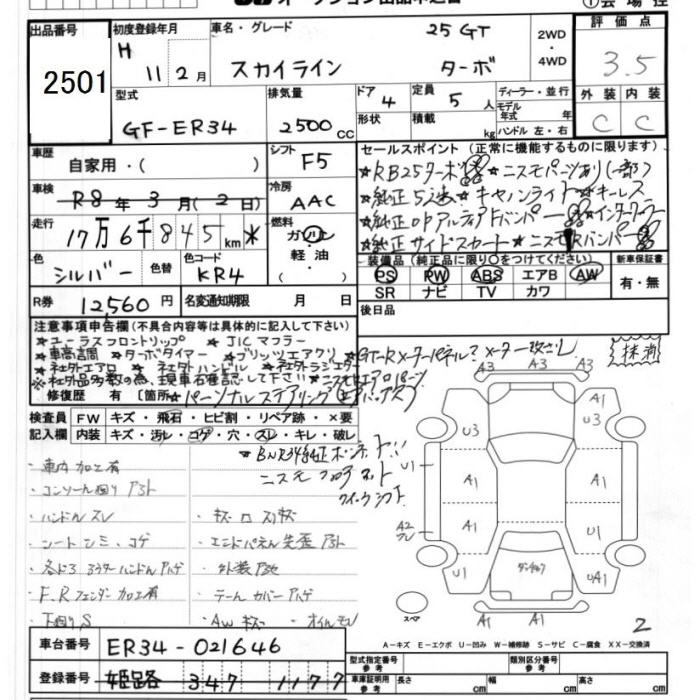 出品番号 2501
初度登録年月 H 11年 2月
車名・グレード スカイライン 25GT ターボ
2WD・4WD
評価点 3.5
外装 C 内装 C
型式 GF-ER34
排気量 2500cc
ドア 4
形状
定員 5人
積載 kg
ディーラー・並行
モデル年式 年
ハンドル 左・右
車歴 自家用・( )
シフト F5
車検 R8年3月(2日)
冷房 AAC
走行 17万6千845km *
燃料 ガソリン 軽油・( )
色 シルバー 色替
色コード KR4
R券 12,560円
名変通知期限 月 日
セールスポイント (正常に機能するものに限ります)
★RB25ターボ ★ニスモパーツあり(一部)
★純正5速 ★キセノンライト ★キーレス
★純正OPアルティアFバンパー ★インタークーラー
★純正サイドスカート ★ニスモRバンパー
装備品 (純正品に限り○をつけてください)
PS PW ABS エアB AW
SR ナビ TV カワ
新車保証書 有・無
後日品
注意事項申告欄 (不具合内容等は具体的に記入して下さい)
★ユーラスフロントリップ ★JICマフラー
★車高調 ★ターボタイマー ★ブリッツエアクリ ★GT-Rメーターパネル?メーター改ざんし
★社外エアロ ★社外ハンドル ★社外ラジエター
※社外品多数の為、現車確認して下さい!! ★ニスモエアロパーツ
修復歴 有 [箇所 ★パーソナルステアリング(エアバックレス)
抹消
検査員記入欄
FW キズ・飛石・ヒビ割・リペア跡・×要
内装 キズ・汚レ・コゲ・穴・スレ・キレ・破レ
★BNR34純正ボンネット!!
ニスモ フロアマット
クイックシフト
・車内加工有
・コンソール廻りアト
・ハンドルスレ
・シートシミ・コゲ
・各ドアアウターハンドルハゲ
・F.Rフェンダー加工有
・下廻りS
・キズ ロスリキズ
・エンドパネル先歪アト
・外装アセ
・テールカバーハゲ
・AWキズ ・オイルモレ
A3 A3 A3
U3 U3
U1 A1 A1
A2 スレ A1 U1
U1 UA1
A1 A1
スペア
2
A-キズ E-エクボ U-凹み W-補修跡 S-サビ C-腐食 XX-交換済
車台番号 ER34-021646
登録番号 姫路 347 1177
型式指定番号 参考
類別区分番号 参考
車庫証明用 参考 長さ cm 幅 cm 高さ cm